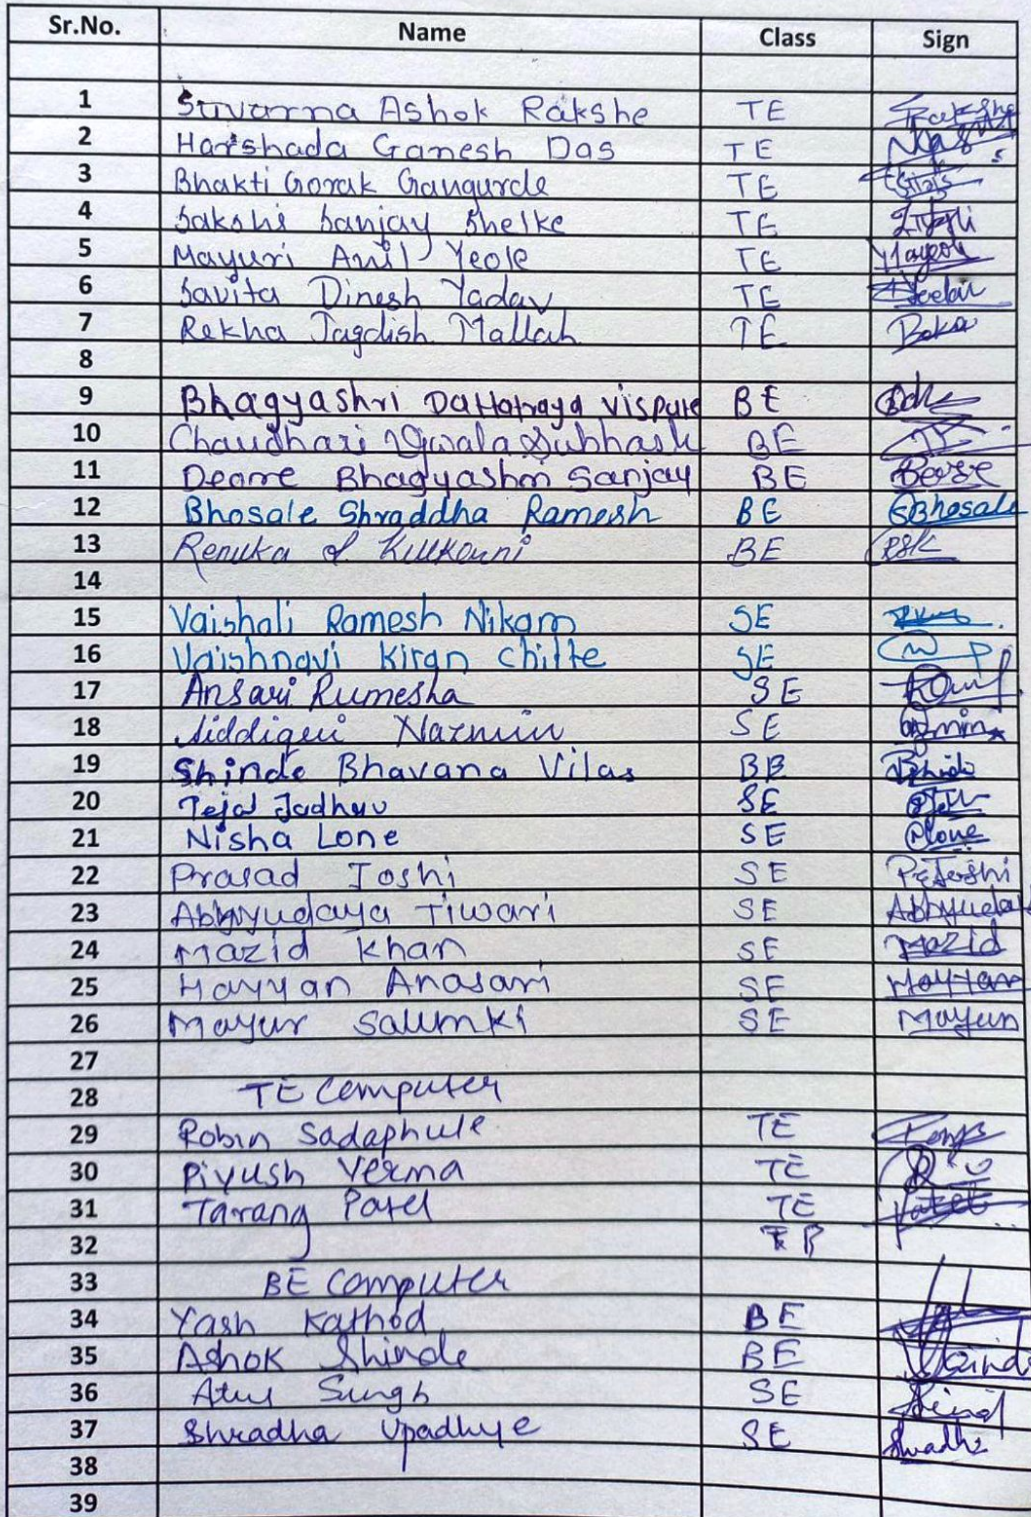 Sr.No. Name Class Sign
1 Suvarna Ashok Rakshe TE
2 Harshada Ganesh Das TE
3 Bhakti Gorak Gangurde TE
4 Sakshi Sanjay Shelke TE
5 Mayuri Anil Yeole TE
6 Savita Dinesh Yadav TE
7 Rekha Jagdish Mallah TE
8
9 Bhagyashri Dattatraya vispute BE
10 Chaudhari Ujwala Subhash BE
11 Deore Bhagyashri Sanjay BE
12 Bhosale Shraddha Ramesh BE Bhosale
13 Renuka S Kulkarni BE RSK
14
15 Vaishali Ramesh Nikam SE
16 Vaishnavi Kiran Chitte SE
17 Ansari Rumesha SE
18 Siddiqui Nazmin SE
19 Shinde Bhavana Vilas BB
20 Tejal Jadhav SE
21 Nisha Lone SE Nlone
22 Prasad Joshi SE
23 Abhyudaya Tiwari SE
24 Mazid Khan SE Mazid
25 Hayyan Anasari SE Hayyan
26 Mayur Salunki SE Mayur
27
28 TE Computer
29 Robin Sadaphule TE
30 Piyush Verma TE
31 Tarang Patel TE Patel
32
33 BE Computer
34 Yash Rathod BE
35 Ashok Shinde BE
36 Atul Singh SE
37 Shradha Upadhye SE
38
39